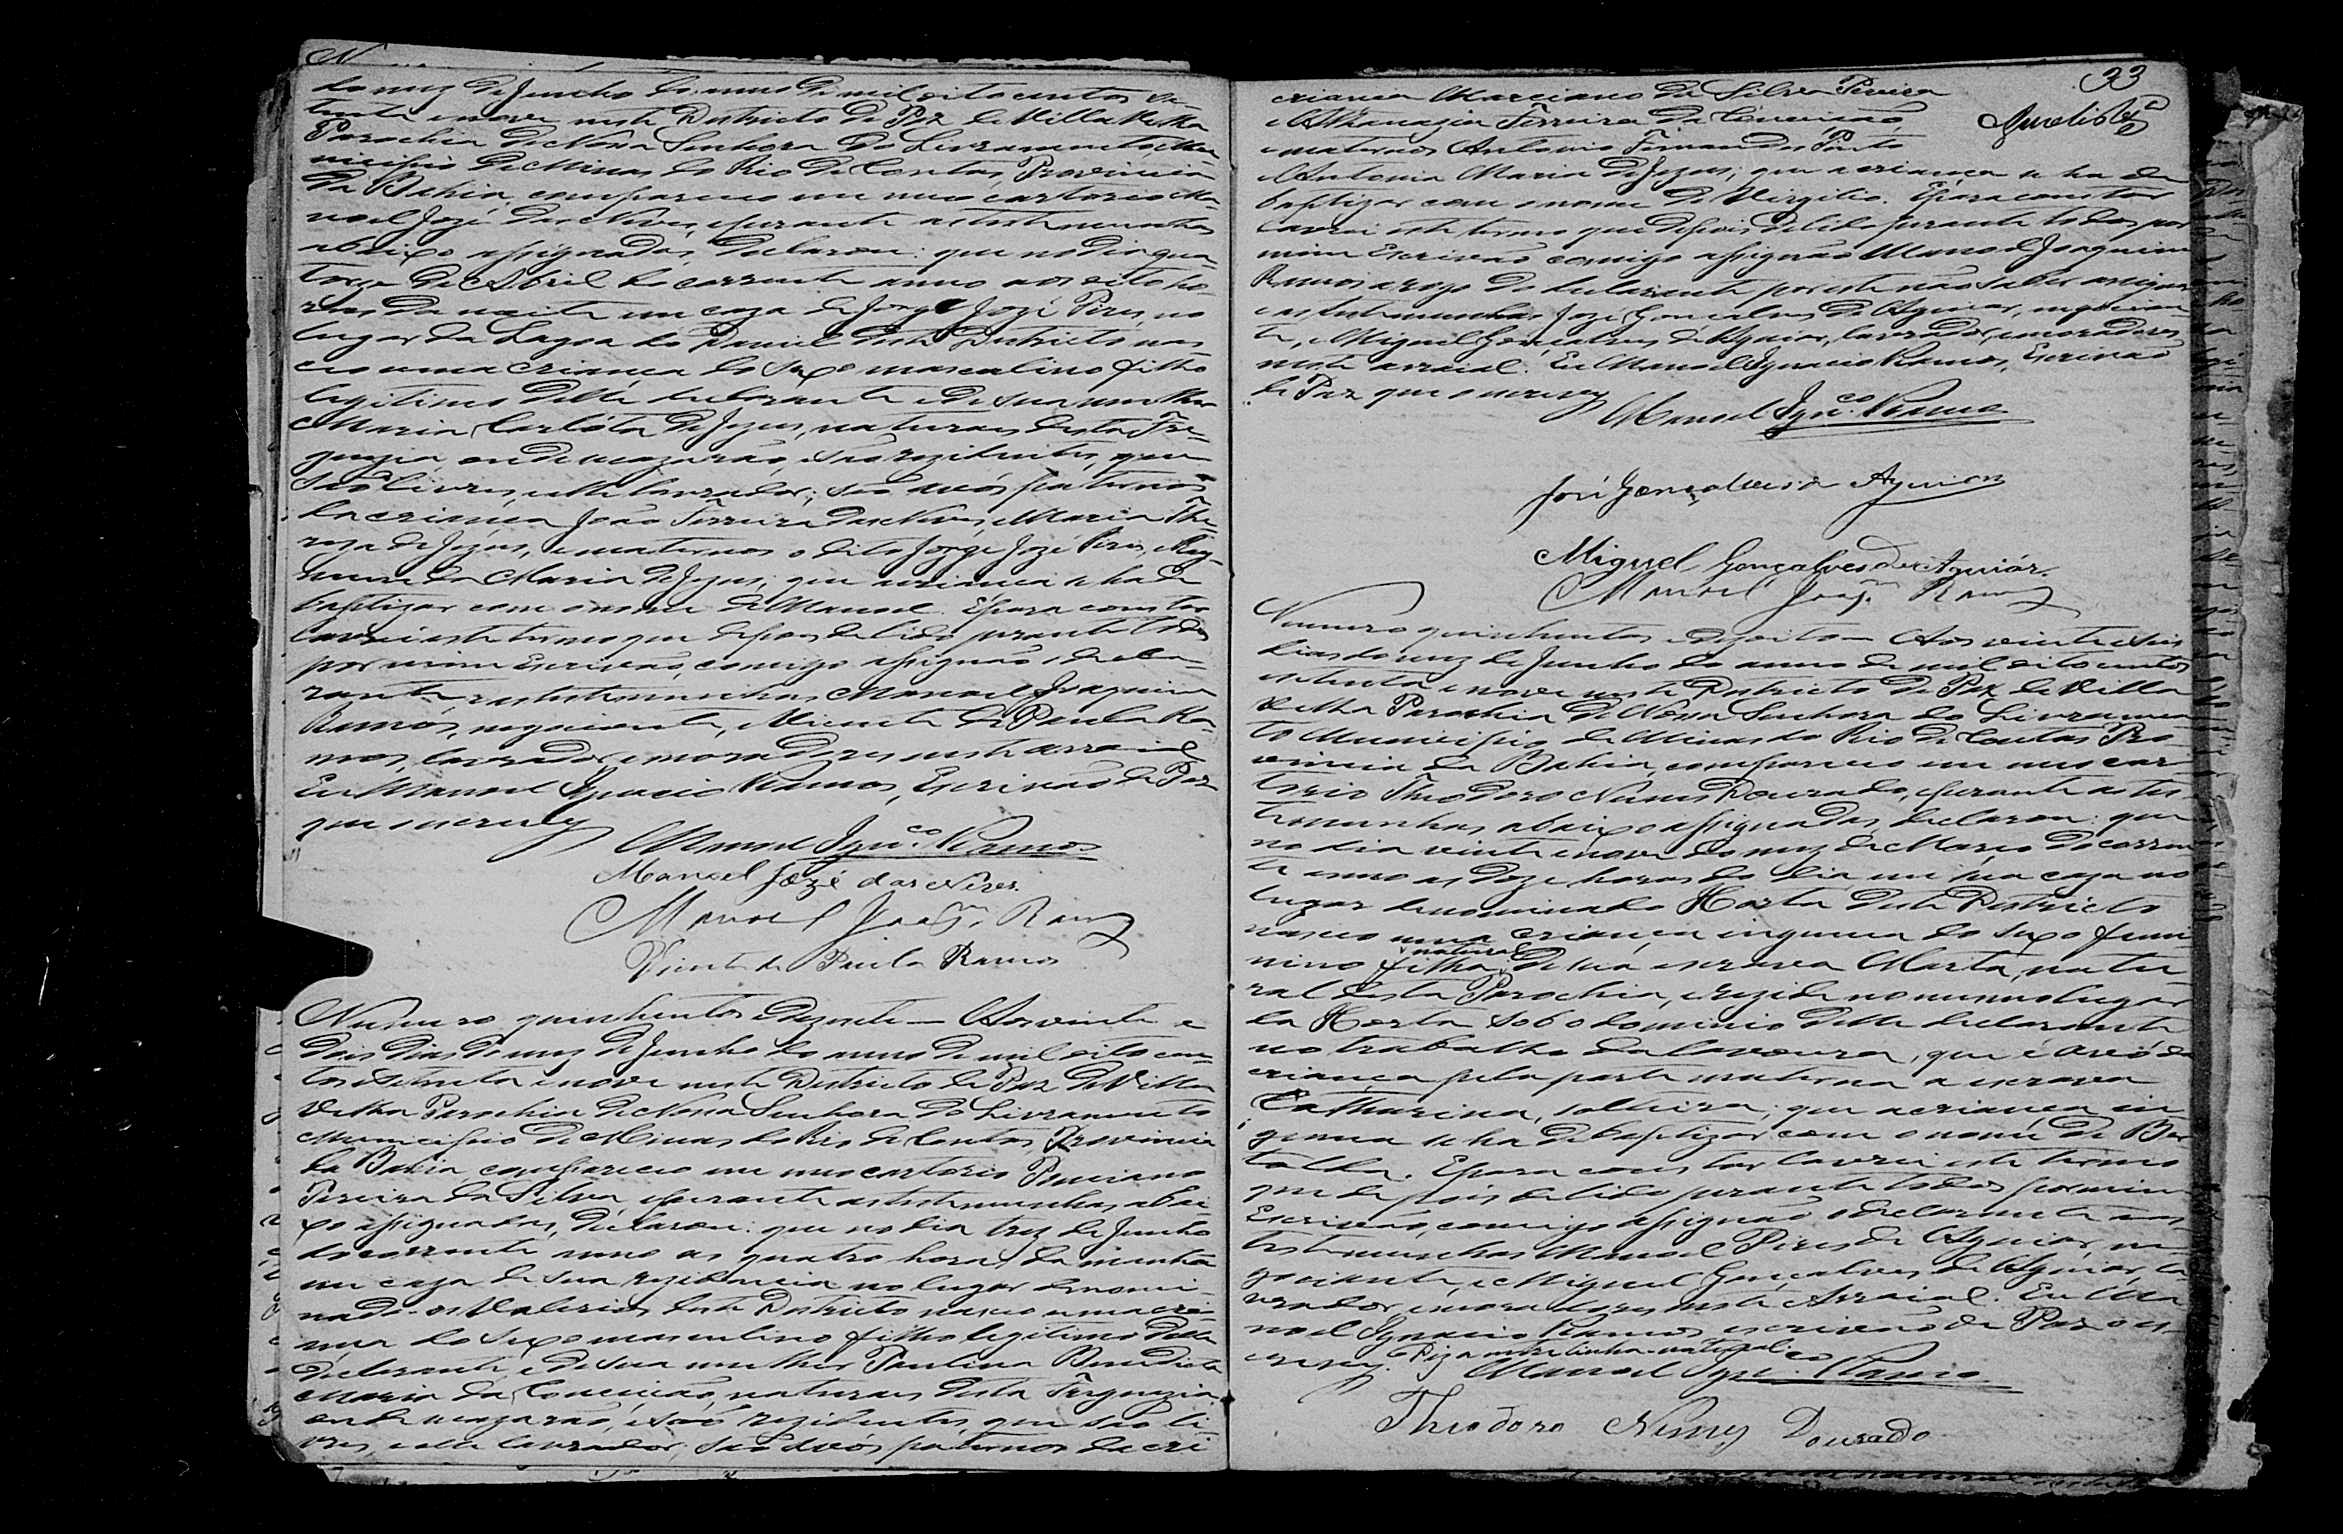 do mez de Junho do anno de mil oito centos se-
tenta e nove neste Districto de Paz de Villa Velha
Parochia de Nossa Senhora do Livramento, Mu-
nicipio de Minas do Rio de Contas, Provincia
da Bahia, compareceo em meu cartorio Ma-
noel Jozé das Neves, e perante as testemunhas
abaixo assignadas, declarou: que no dia qua-
torze de Abril do corrente anno as oito ho-
ras da noite em caza de Jorge Jozé Pires, no
lugar da Lagoa do Daniel deste Districto nas-
ceo uma criança do sexo masculino filho
legitimo delle declarante e de sua mulher
Maria Carlóta de Jezus, naturaes desta Fre-
guezia, onde se cazarão, e são rezidentes, que
são livres, e elle lavrador; são avós paternos
da criança João Ferreira das Neves, e Maria The-
reza de Jezus, e maternos o dito Jorge Jozé Pires, e Ray-
munda Maria de Jezus; que a criança se ha de
baptizar com o nome de Manoel. E para constar
lavrei este termo que depois de lido perante todos
por mim Escrivão, comigo assignão o decla-
rante, e as testemunhas Manoel Joaquim
Ramos, negociante, e Vicente de Paula Ra-
mos, lavrador, e moradores neste arraial
Eu Manoel Ignacio Ramos, Escrivão de Paz
que o escrevy
Manoel Igncº. Ramos
Manoel Jozé das Neves
Manoel Joaqm. Ramos
Vicente de Paula Ramos
Numero quinhentos e dezesete — Aos vinte e
dois dias do mez de Junho do anno de mil oito cen-
tos e setenta e nove neste Districto de Paz de Villa
Velha Parochia de Nossa Senhora do Livramento
Municipio de Minas do Rio de Contas, Provincia
da Bahia compareceo em meu cartorio Ponciano
Pereira da Silva, e perante as testemunhas abai-
xo assignadas, declarou: que no dia trez de Junho
do corrente anno as quatro horas da manhã
em caza de sua rezidencia no lugar denomi-
nado os Valerios deste Districto nasceo uma cri-
ança do sexo masculino filho legitimo delle
declarante, e de sua mulher Paulina Benedicta
Maria da Conceicão, naturaes desta Freguezia
onde se cazarão, e são rezidentes, que são li-
vres, e elle lavrador, são avós paternos da cri
33
criança Marciano da Silva Pereira
e Athanazia Ferreira da Conceicão,
e maternos Antonio Fernandes Pinto
e Antonia Maria de Jezus; que a criança se ha de
baptizar com o nome de Virgilio. E para constar
lavrei este termo que depois de lido perante todos por
mim Escrivão comigo assignão Manoel Joaquim
Ramos a rogo do declarante por este não saber assignar
e as testemunhas Joze Gonçalves de Aguiar, negocian-
te, e Miguel Gonçalves de Aguiar, lavrador, e moradores
neste arraial. Eu Manoel Ignacio Ramos, Escrivão
de Paz que o escrevy
Manoel Igncº. Ramos
José Gonçalves de Aguiar
Miguel Gonçalves de Aguiár.
Manoel Joaqm. Ramos
Numero quinhentos e dezoito — Aos vinte e seis
dias do mez de Junho do anno de mil oito centos
e setenta e nove neste Districto de Paz de Villa
Velha Parochia de Nossa Senhora do Livramen
to Municipio de Minas do Rio de Contas Pro
vincia da Bahia, compareceo em meu car
torio Theodoro Nunes Dourado, e perante as tes-
temunhas abaixo assignadas, declarou: que
no dia vinte e nove do mez de Março do corren
te anno as doze horas do dia em sua caza no
lugar denominado Horta deste Districto
nasceo uma criança ingenua do sexo femi-
natural
nino filha de sua escrava Marta, natu
ral desta Parochia, e rezide no mesmo lugar
da Horta sob o dominio delle declarante
no trabalho da lavoura, que é avó da
criança pela parte materna a escrava
Catharina, solteira; que a criança in-
genua se ha de baptizar com o nome de Ber
tolda. E para constar lavrei este termo
que depois de lido perante todos por mim
Escrivão, comigo assignão o declarante e as
testemunhas Manoel Pires de Aguiár, ne-
gociante, e Miguel Gonçalves de Aguiar, la-
vrador, e moradores neste Arraial. Eu Ma
noel Ignacio Ramos escrivão de Paz o es-
crevy. Diz a entrelinha — natural
Manoel Igncº. Ramos
Theodoro Nunes Dourado